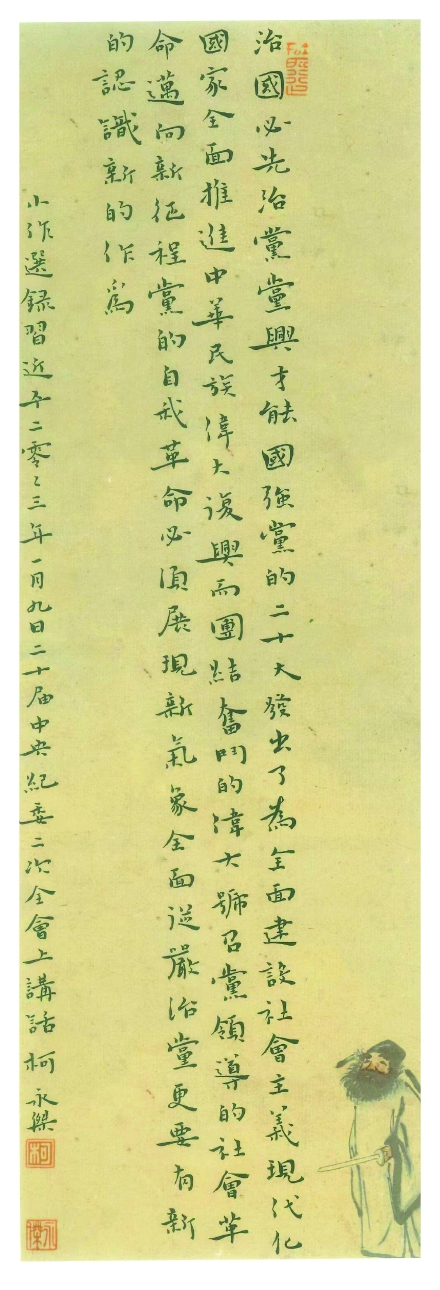 治國必先治黨黨興才能國強黨的二十大發出了為全面建設社會主義現代化
國家全面推進中華民族偉大復興而團結奮鬥的偉大號召黨領導的社會革
命邁向新征程黨的自我革命必須展現新氣象全面從嚴治黨更要有新
的認識新的作為
小作選録習近平二零二三年一月九日二十届中央紀委二次全會上講話柯永
柯